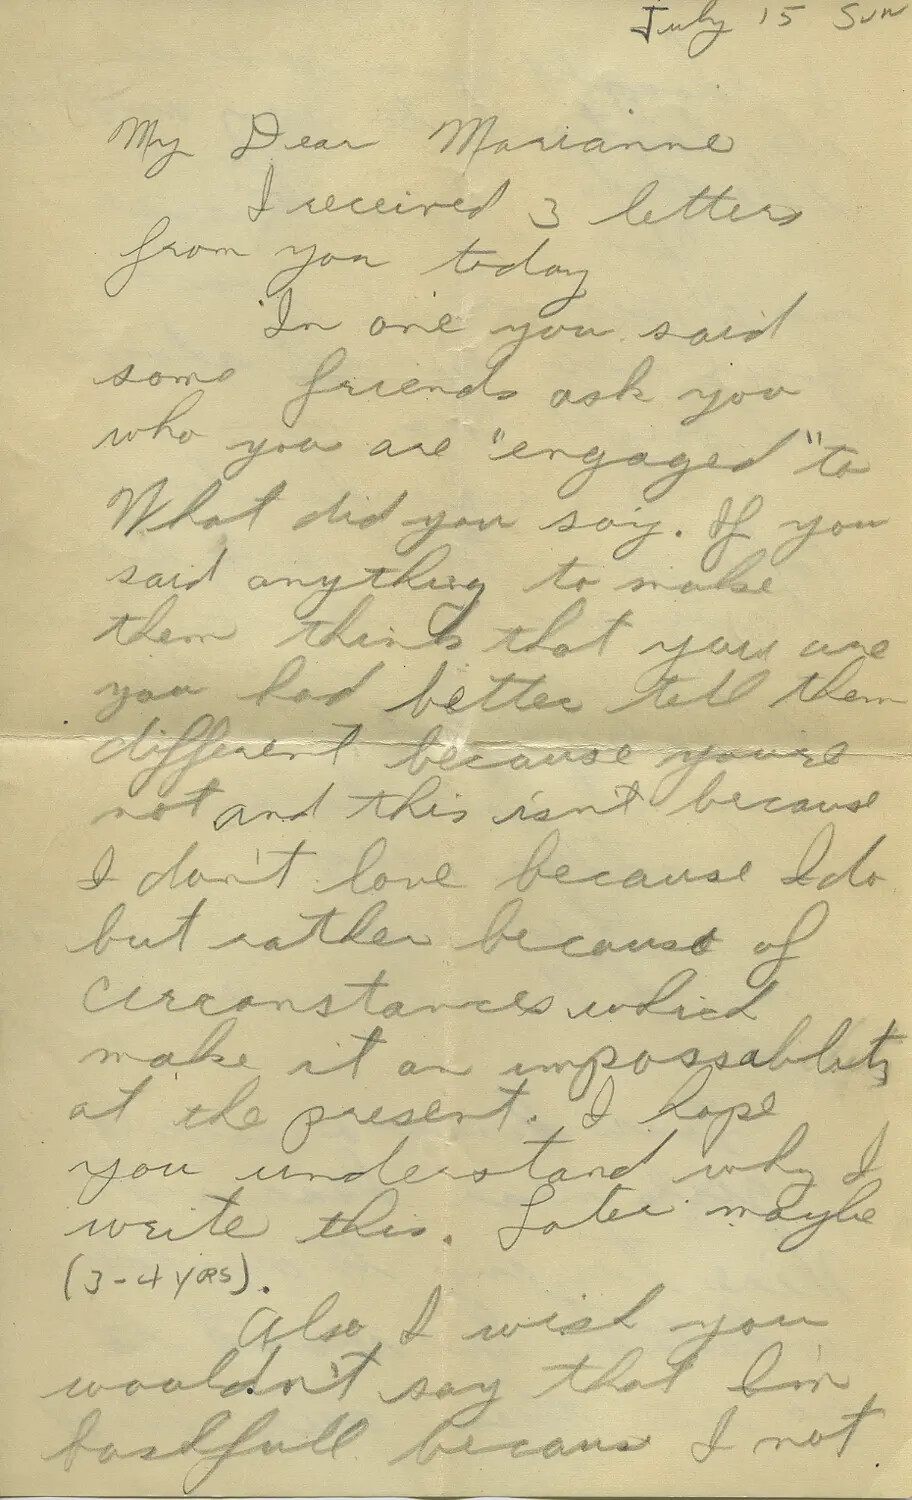 July 15 Sun
My Dear Marianne
I received 3 letters
from you today
In one you said
some friends ask you
who you are "engaged" to
What did you say. If you
said anything to make
them think that you are
you had better tell them
different because you're
not and this isn't because
I don't love because I do
but rather because of
circonstances which
make it an impossablity
at the present. I hope
you understand why I
write this. Later maybe
(3-4 yrs).
Also I wish you
wouldn't say that I'm
bashfull becaus I not